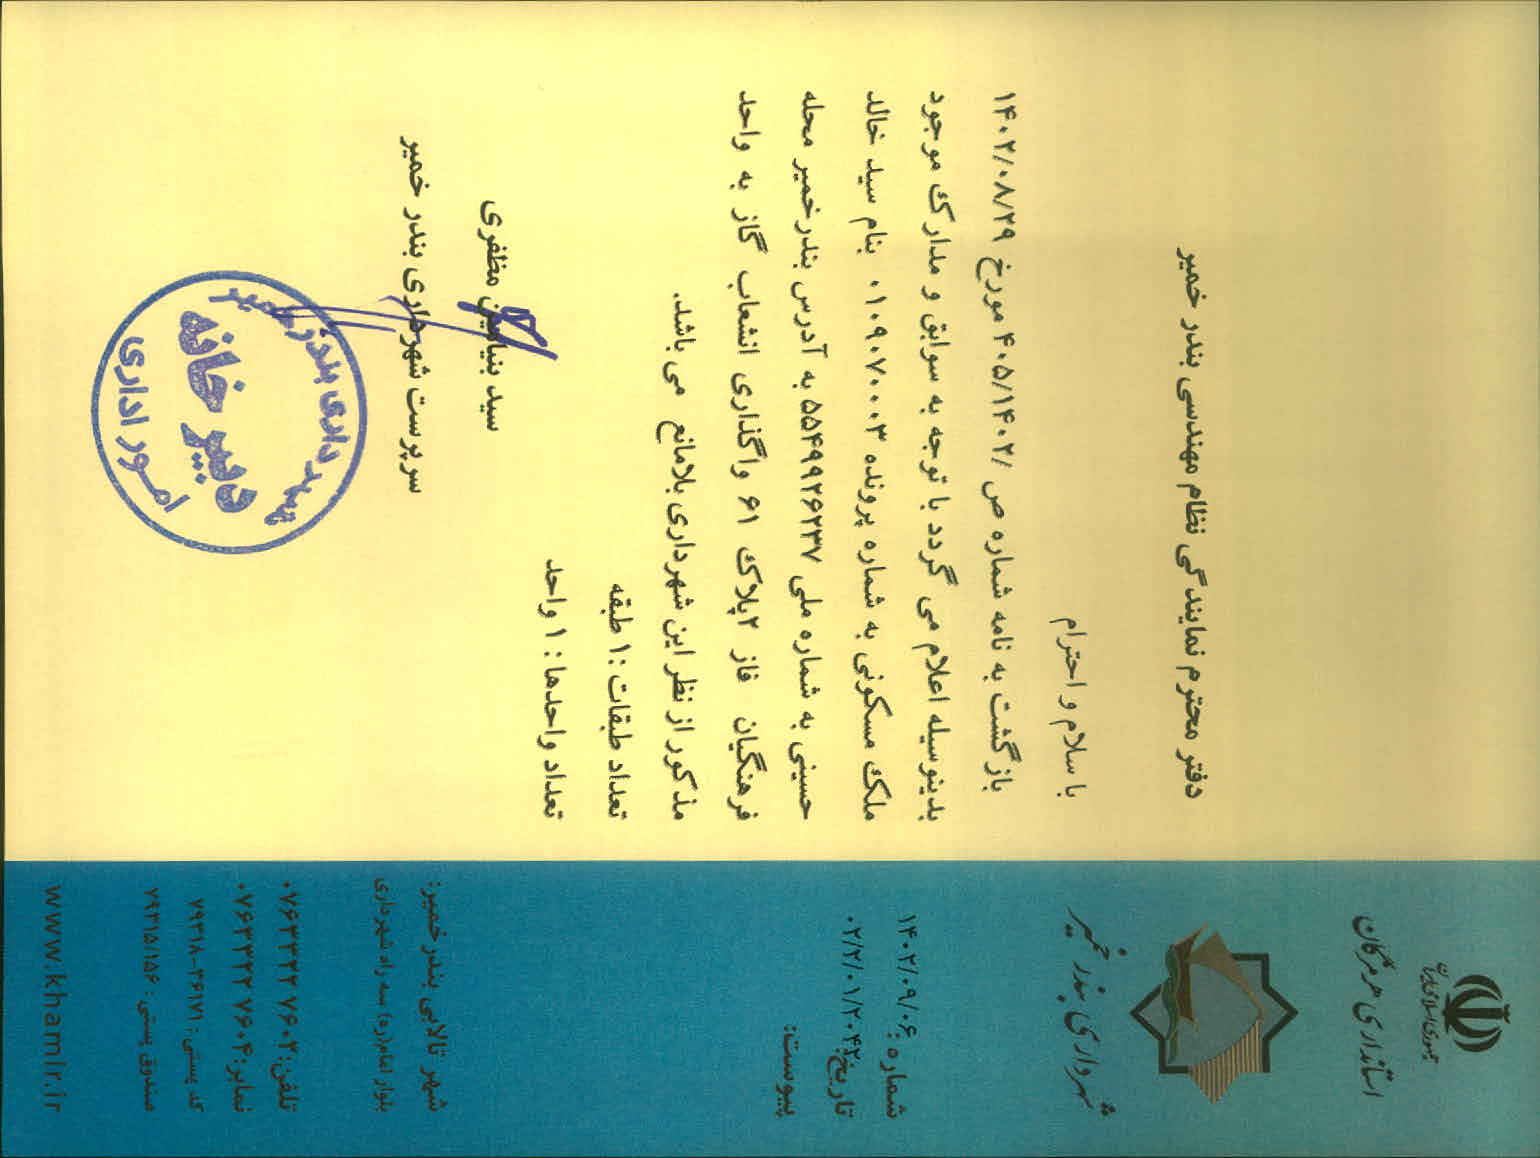 جمهوری اسلامی ایران
استانداری هرمزگان
شهرداری بندر خمیر
شماره: ۱۴۰۲/۰۹/۰۶
تاریخ: ۰۲/۲/۰۱/۲۰۴۲
پیوست:
دفتر محترم نمایندگی نظام مهندسی بندر خمیر
با سلام و احترام
بازگشت به نامه شماره ص /۴۰۵/۱۴۰۲ مورخ ۱۴۰۲/۰۸/۲۹
بدینوسیله اعلام می گردد با توجه به سوابق و مدارک موجود
ملک مسکونی به شماره پرونده ۰۱۰۹۰۷۰۰۰۳ بنام سید خالد
حسینی به شماره ملی ۵۵۴۹۹۲۶۲۳۷ به آدرس بندرخمیر محله
فرهنگیان فاز ۲پلاک ۶۱ واگذاری انشعاب گاز به واحد
مذکور از نظر این شهرداری بلامانع می باشد.
تعداد طبقات :۱ طبقه
تعداد واحدها : ۱ واحد
سید بنیامین مظفری
سرپرست شهرداری بندر خمیر
شهرداری بندر خمیر
دبیر خانه
امور اداری
شهر تالابی بندرخمیر:
بلوار امام(ره) سه راه شهرداری
تلفن: ۰۷۶۳۳۲۲ ۷۶۰۲
نمابر: ۰۷۶۳۳۲۲ ۷۶۰۴
کد پستی : ۷۹۳۱۸-۳۶۱۷۱
صندوق پستی : ۷۹۳۱۵/۱۵۶
www.khamir.ir